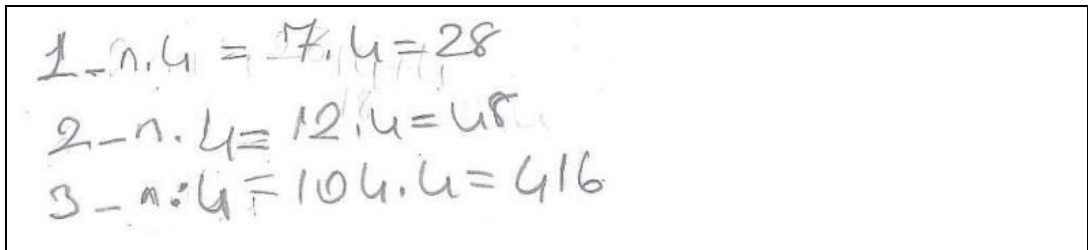 1-n.4 = 7.4=28
2-n.4= 12.4=48
3-n.4=104.4=416